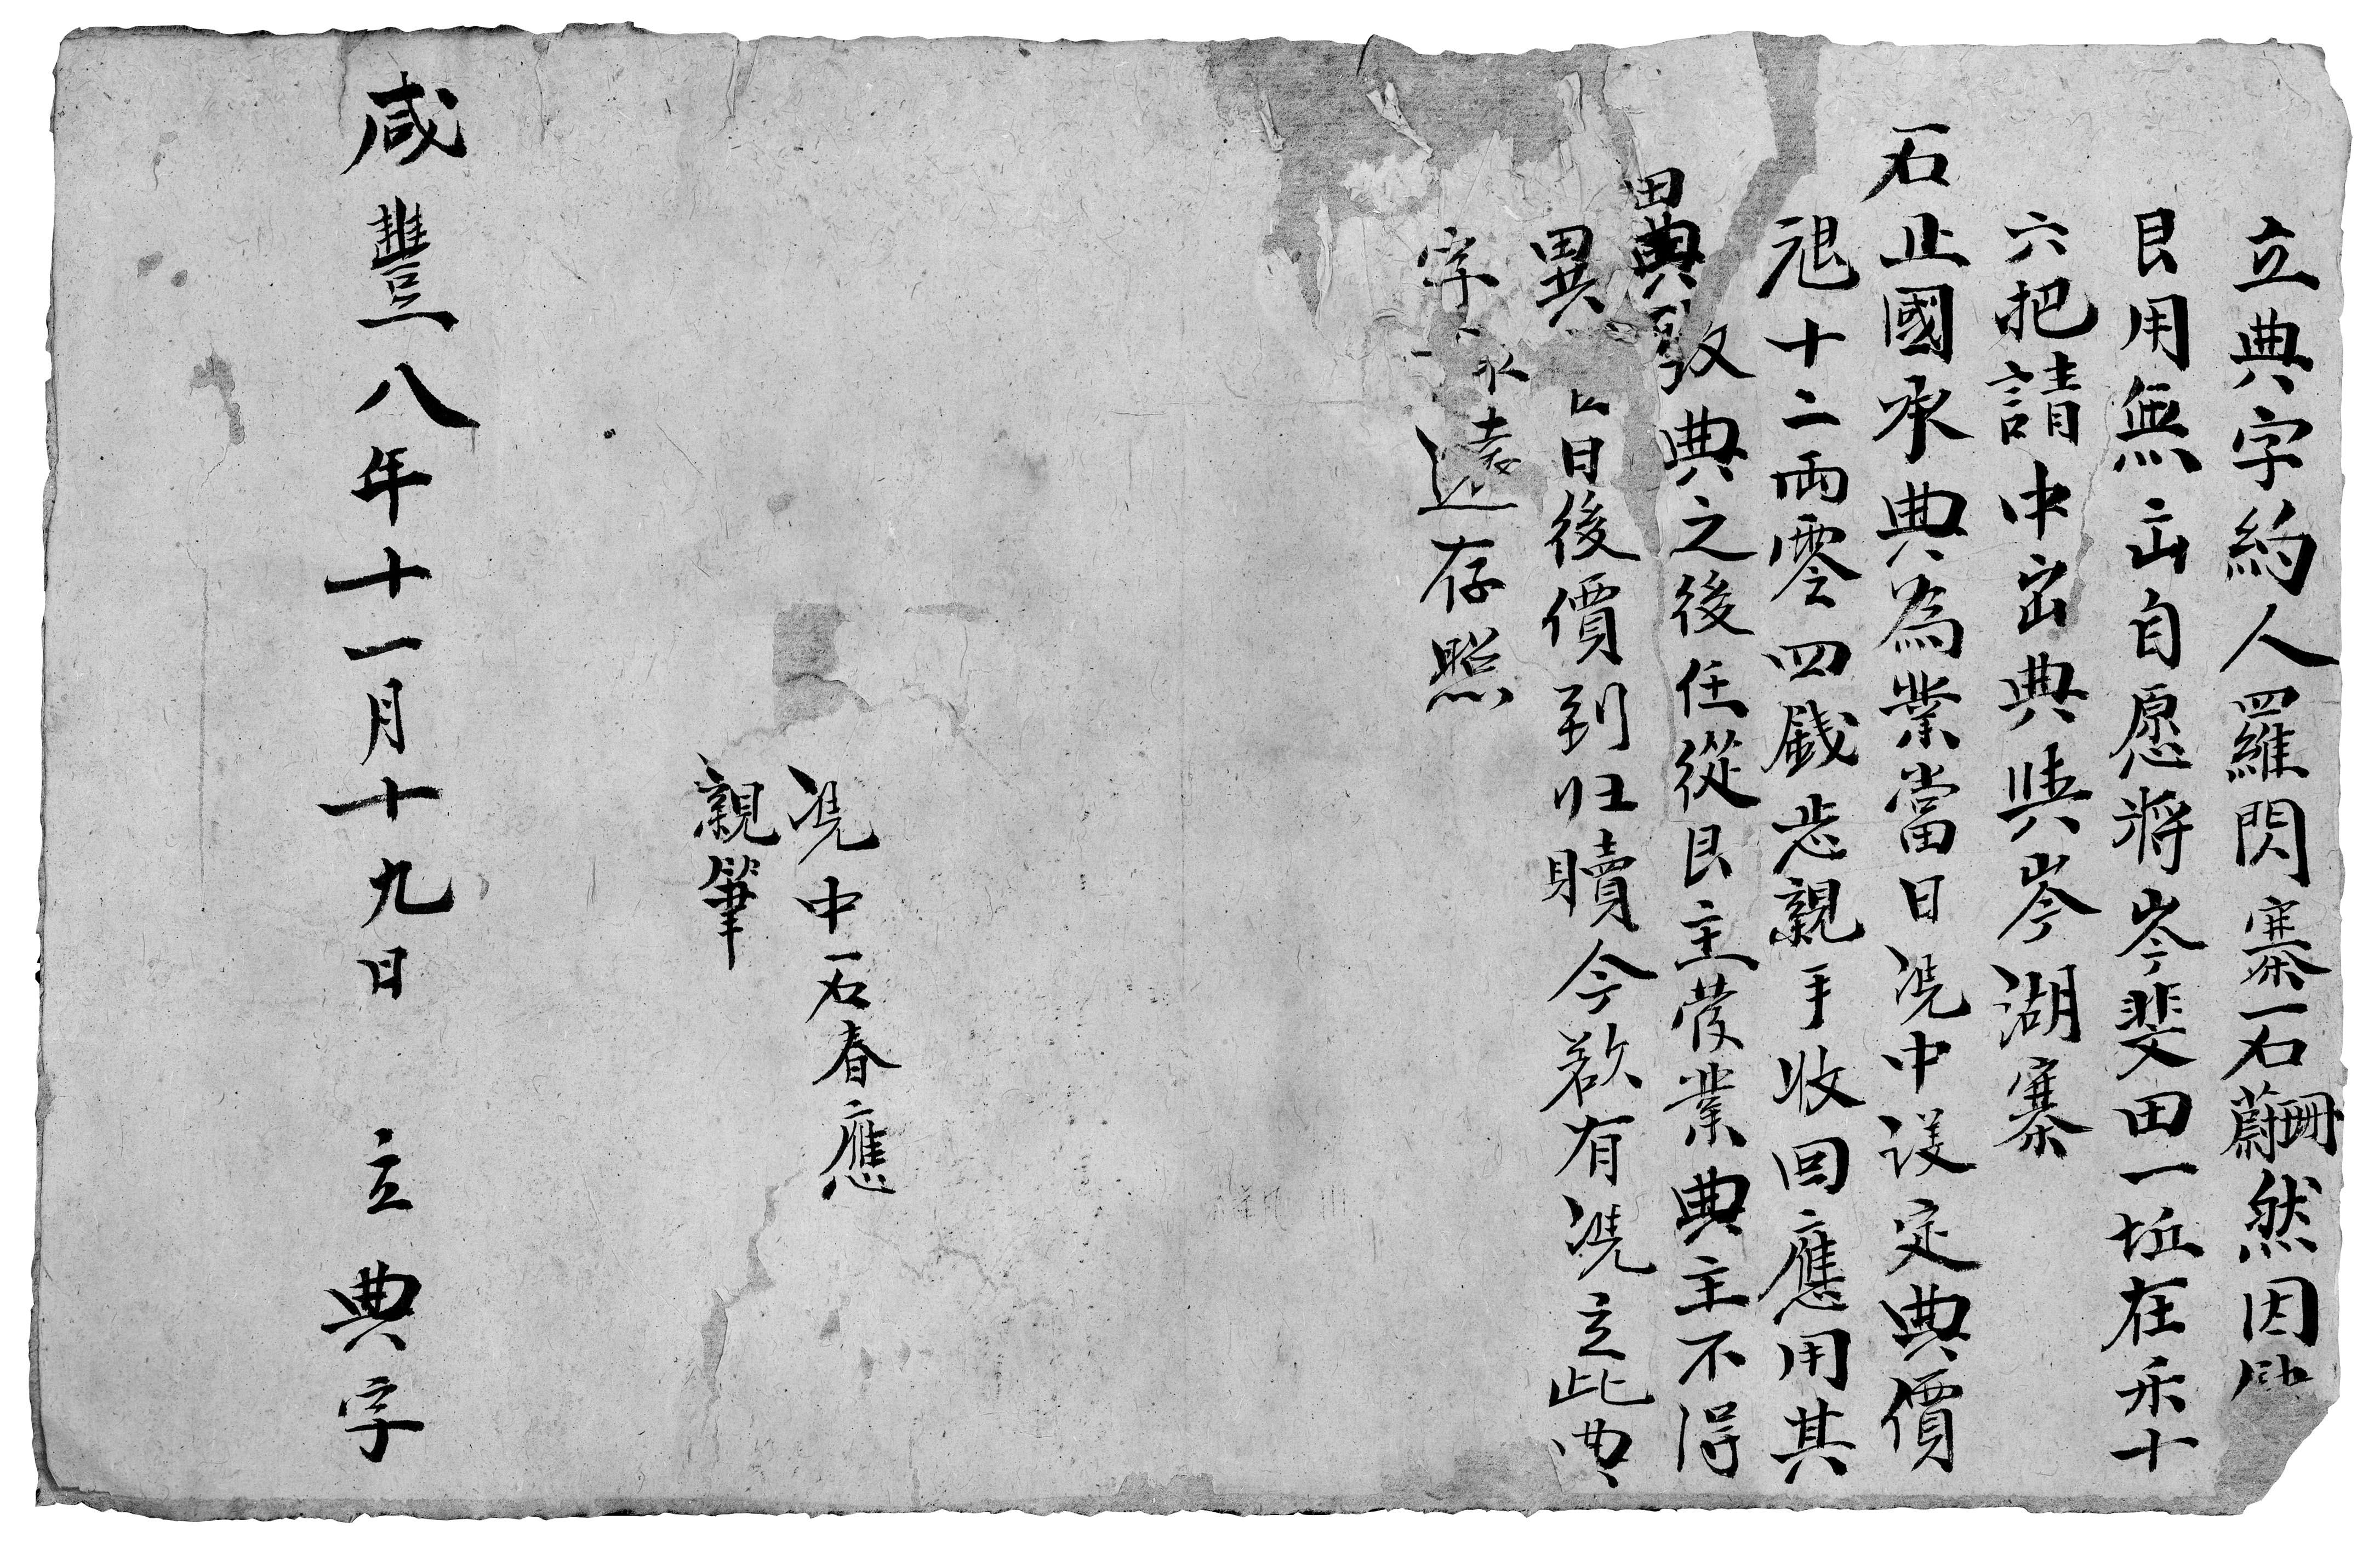 立典字約人羅閃寨石蔚珊然因
艮用無出自愿將岑斐田一坵在禾十
六把請中出典與岑湖寨
石止國承典為業當日凴中議定典價
艮十二両零四戲恙親手收回應用其
田典之後任從艮主管業典主不得
異日後價到归贖今欲有凴立此典
字永遠存照
凴中石春應
親筆
咸豐八年十一月十九日 立典字